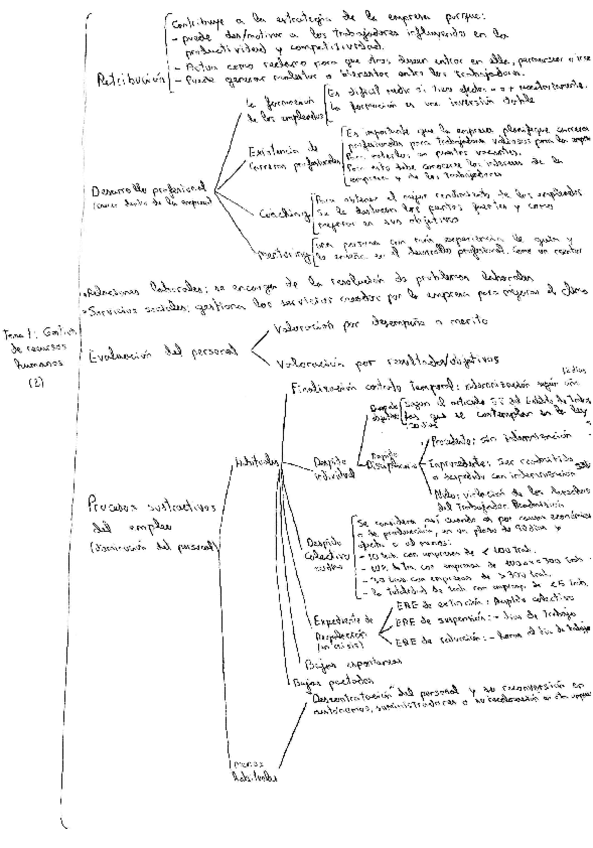 Contribuye a la estrategia de la empresa porque:
- puede des/motivar a los trabajadores influyendo en la
productividad y competitividad.
- Actua como reclamo para que otros deseen entrar en ella, permanecer o irse
- Puede generar malestar o bienestar entre los trabajadores.
Retribución
La formación
de los empleados
Es dificil medir si tiene efectos - o +
La formación es una inversión
Existencia de
Carreras profesionales
Es importante que la empresa planifique carreras
profesionales para trabajadores valiosos para la
Para puestos vacantes.
Para esto debe conocerse los intereses de la
empresa y de los trabajadores
Desarrollo profesional
(crecer dentro de la empresa)
Coaching
Para obtener el mejor rendimiento de los empleados
Se le destacan los puntos fuertes y como
mejorar en sus objetivos
Mentoring
una persona con más experiencia le guia y
le enseña en el desarrollo profesional. Como un mentor
Relaciones laborales: se encargan de la resolución de problemas laborales
Servicios sociales: gestiona los servicios creados por la empresa para mejorar el clima
Tema 1: Gestión
de recursos
humanos
(2)
Evaluación del personal
Valoración por desempeño o merito
Valoración por resultados/objetivos
Finalización contrato temporal: indemnización según año
Despido
objetivo
Según el articulo 52 del
las que se contemplan en la ley
Habituales
Despido
individual
Despido
Disciplinario
Procedente: sin indemnización
Improcedente: Ser readmitido
o despedido con indemnización
Nulo: violación de los derechos
del Trabajador. Readmisión
Procesos sustractivos
del empleo
(disminución del personal)
Despido
Colectivo
Se considera así cuando es por causas económicas
o de producción, en un plazo de 90 días y
afecta a al menos:
- 10 trab. con empresas de < 100 trab.
- 10% trab. con empresas de 100 a 300 trab.
- 30 trab con empresas de > 300 trab.
- la totalidad de trab con empresas de < 5 trab.
Expediente de
Regulación
ERE de extinción: despido colectivo
ERE de suspensión: - dias de trabajo
ERE de reducción: - horas al dia de trabajo
Bajas espontaneas
Bajas pactadas
menos
habituales
"Descontratación" del personal y su reconversión en
autónomos, suministradores o su recolocación en otra